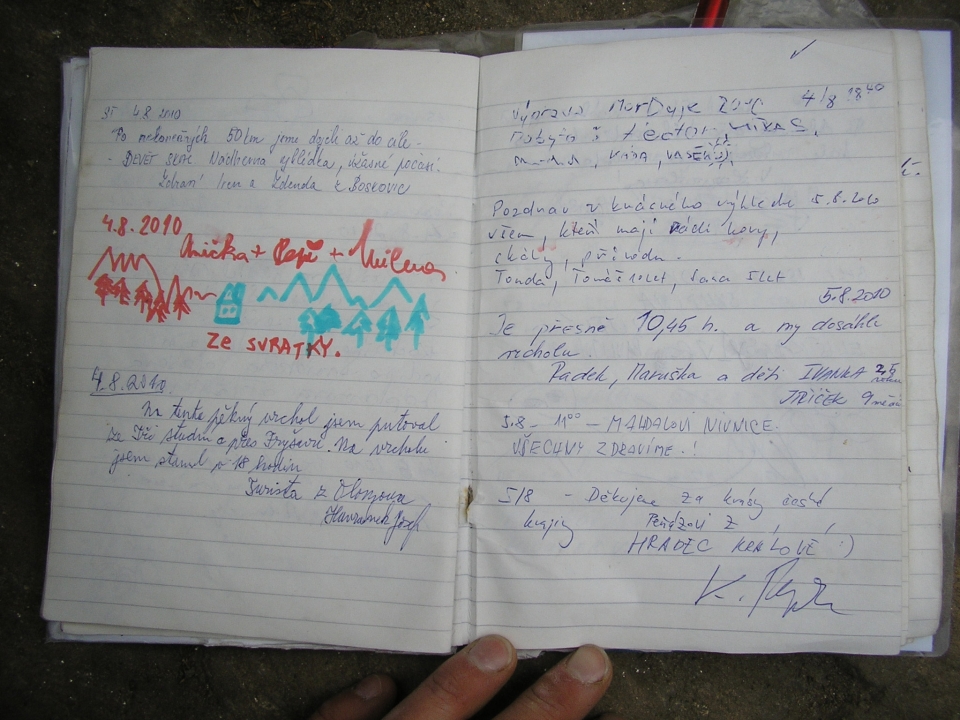 ST 4.8 2010
Po nekonečných 50 km jsme dych až do cíle.
- DEVĚT SKAL Nádherná vyhlídka, úžasné počasí.
Zdraví Iren a Zdenda z Boskovic
4.8.2010
Anička + Pepi + Milena
ZE SVRATKY.
4.8.2010.
Na tento pěkný vrchol jsem putoval
ze Tří studní a přes Fryšavu. Na vrcholu
jsem stanul v 18 hodin
Turista z Olomouce
Havránek Josef
Výprava 4/8 18 40
Hector,
Pozdrav z krásného výhledu 5.8.2010
všem, kteří mají rádi hory,
skály, přírodu.
Tonda, Tomáš 10let, Sasa 5let
5.8.2010
Je přesně 10,45 h. a my dosáhli
vrcholu.
Radek, Maruška a děti IVANKA 2,5
JIŘÍČEK 9
5.8 - 11 00 - NIVNICE.
VŠECHNY ZDRAVÍME.!
5/8 - Děkujeme za krásy české
krajiny z
HRADEC KRÁLOVÉ :)
K.